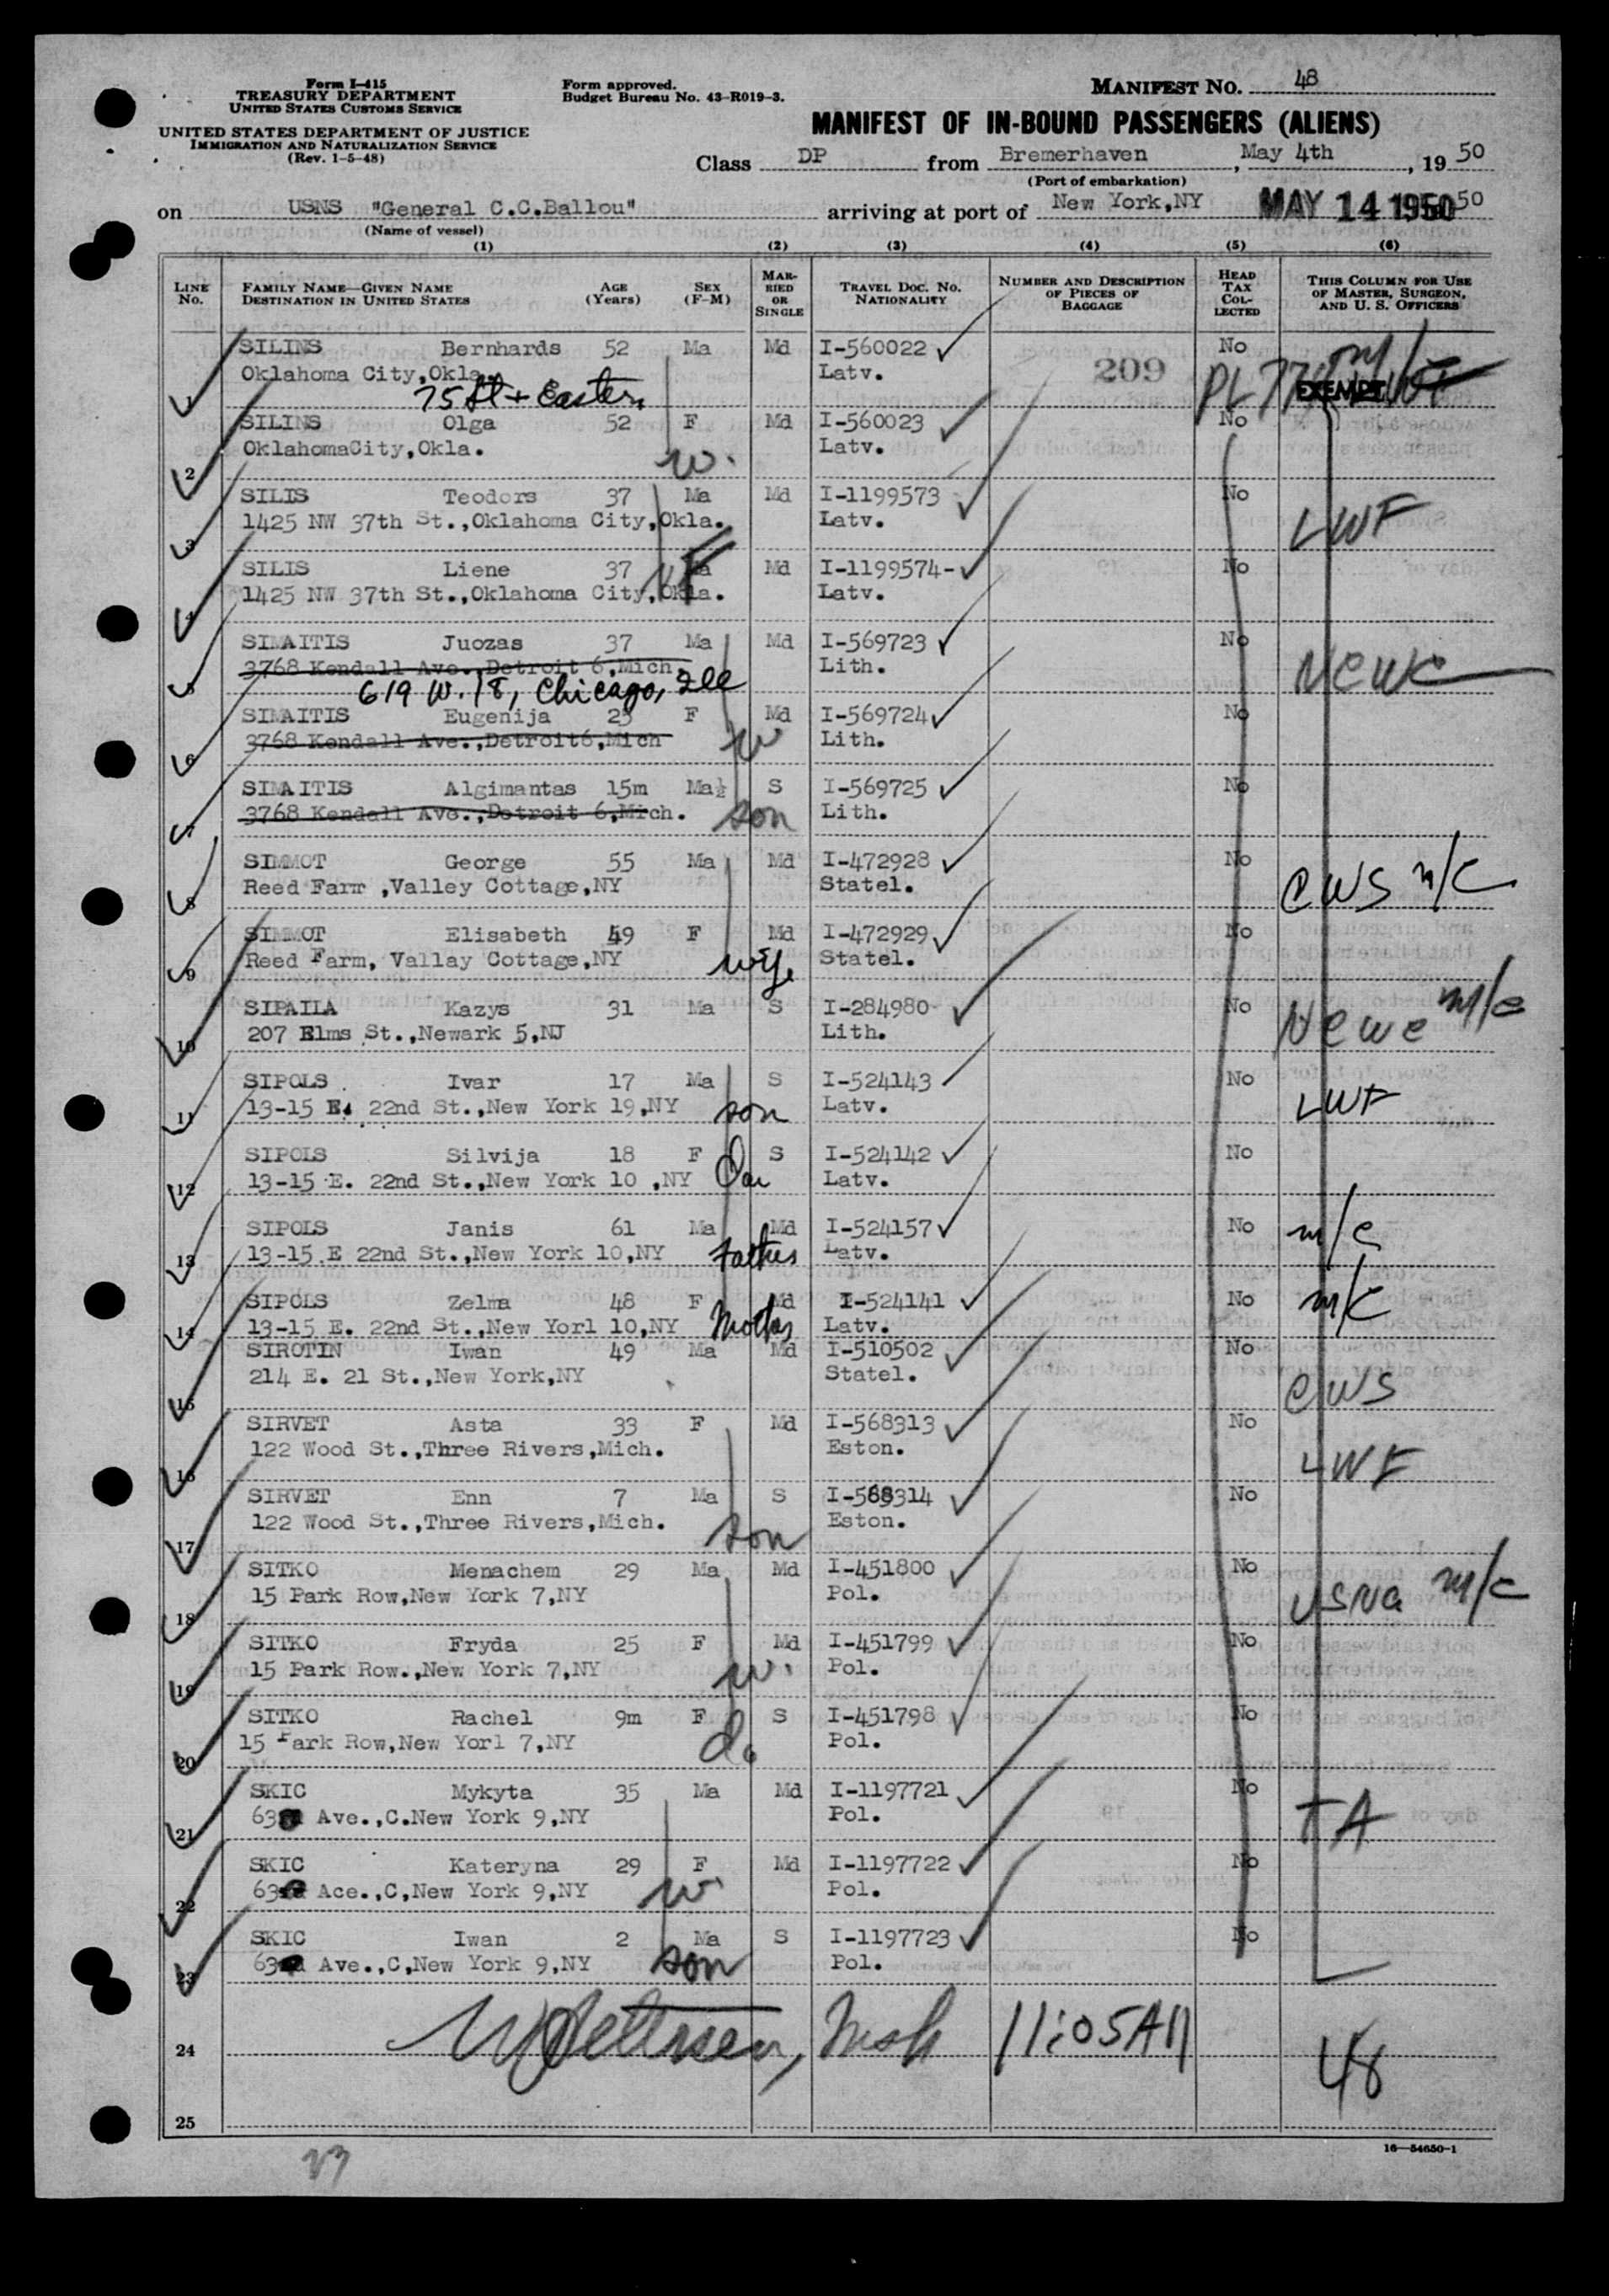 Form I-415
TREASURY DEPARTMENT
UNITED STATES CUSTOMS SERVICE
UNITED STATES DEPARTMENT OF JUSTICE
IMMIGRATION AND NATURALIZATION SERVICE
(Rev. 1-5-48)
Form approved.
Budget Bureau No. 43-R019-3.
MANIFEST NO. 48
MANIFEST OF IN-BOUND PASSENGERS (ALIENS)
Class DP from Bremerhaven, May 4th, 19 50
(Port of embarkation)
on USNS "General C.C.Ballou" arriving at port of New York,NY MAY 14 1950 50
(Name of vessel)
(1) (2) (3) (4) (5) (6)
LINE No. FAMILY NAME—GIVEN NAME DESTINATION IN UNITED STATES AGE (Years) SEX (F-M) MARRIED OR SINGLE TRAVEL DOC. NO. NATIONALITY NUMBER AND DESCRIPTION OF PIECES OF BAGGAGE HEAD TAX COLLECTED THIS COLUMN FOR USE OF MASTER, SURGEON, AND U. S. OFFICERS
SILINS Bernhards 52 Ma Md I-560022 209 No
1 Oklahoma City,Okla. Latv. PL 774 EXEMPT
75 St + Eastern
SILINS Olga 52 F Md I-560023 No
2 OklahomaCity,Okla. w. Latv.
SILIS Teodors 37 Ma Md I-1199573 No
3 1425 NW 37th St.,Oklahoma City,Okla. Latv. LWF
SILIS Liene 37 F Md I-1199574- No
4 1425 NW 37th St.,Oklahoma City,Okla. Latv.
SIMAITIS Juozas 37 Ma Md I-569723 No
5 3768 Kendall Ave.,Detroit 6,Mich Lith. NCWC
619 W. 18, Chicago, Ill
SIMAITIS Eugenija 25 F Md I-569724 No
6 3768 Kendall Ave.,Detroit6,Mich w Lith.
SIMAITIS Algimantas 15m Ma S I-569725 No
7 3768 Kendall Ave.,Detroit 6,Mich. son Lith.
SIMMOT George 55 Ma Md I-472928 No
8 Reed Farm ,Valley Cottage,NY Statel. CWS m/c
SIMMOT Elisabeth 49 F Md I-472929 No
9 Reed Farm, Vallay Cottage,NY wife Statel.
SIPAILA Kazys 31 Ma S I-284980 No
10 207 Elms St.,Newark 5,NJ Lith. NCWC m/c
SIPOLS Ivar 17 Ma S I-524143 No
11 13-15 E. 22nd St.,New York 19,NY son Latv. LWF
SIPOLS Silvija 18 F S I-524142 No
12 13-15 E. 22nd St.,New York 10 ,NY Dau Latv.
SIPOLS Janis 61 Ma Md I-524157 No m/c
13 13-15 E 22nd St.,New York 10,NY Father Latv.
SIPOLS Zelma 48 F Md I-524141 No m/c
14 13-15 E. 22nd St.,New Yorl 10,NY Mother Latv.
SIROTIN Iwan 49 Ma Md I-510502 No
15 214 E. 21 St.,New York,NY Statel. CWS
SIRVET Asta 33 F Md I-568313 No
16 122 Wood St.,Three Rivers,Mich. Eston. LWF
SIRVET Enn 7 Ma S I-568314 No
17 122 Wood St.,Three Rivers,Mich. son Eston.
SITKO Menachem 29 Ma Md I-451800 No
18 15 Park Row,New York 7,NY Pol. USNA m/c
SITKO Fryda 25 F Md I-451799 No
19 15 Park Row.,New York 7,NY w. Pol.
SITKO Rachel 9m F S I-451798 No
20 15 Park Row,New Yorl 7,NY d. Pol.
SKIC Mykyta 35 Ma Md I-1197721 No
21 63 Ave.,C.New York 9,NY Pol. TA
SKIC Kateryna 29 F Md I-1197722 No
22 63 Ace.,C,New York 9,NY w. Pol.
SKIC Iwan 2 Ma S I-1197723 No
23 63 Ave.,C,New York 9,NY son Pol.
24 11:05AM 48
25
16—54650-1
23